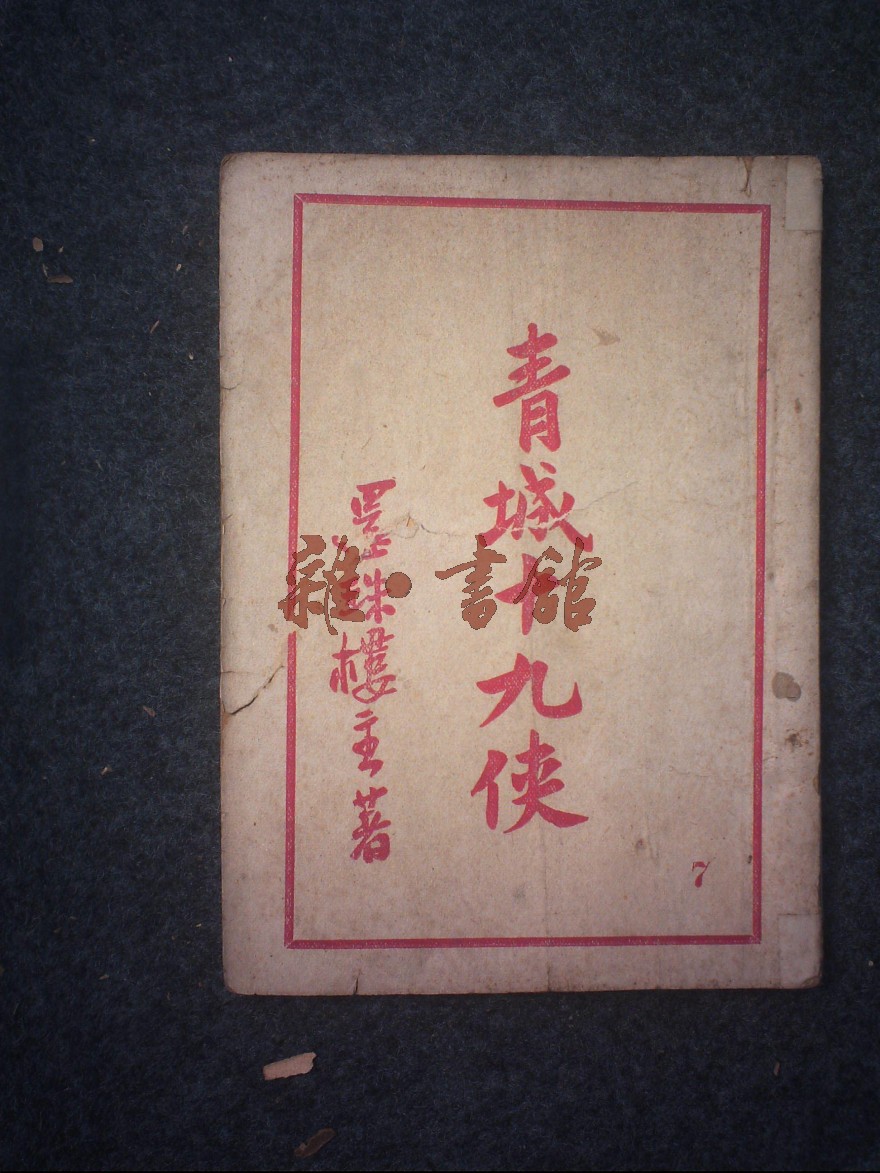 青城十九侠
還珠樓主著
雜·書館
7